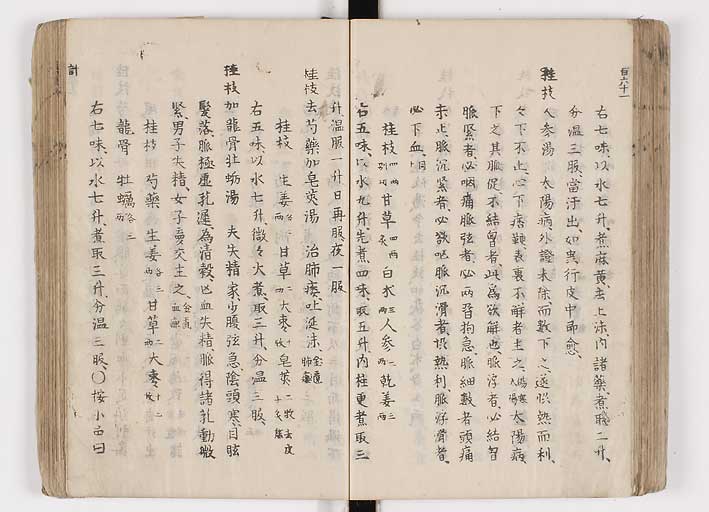 百六十一
右七味、以水七升、煮麻黄、去上沫、内諸藥、煮取二升、
分温三服、當汗出、如虫行皮中即愈、
桂枝
人参湯 太陽病、外證未除、而數下之、遂恊熱而利、
々下不止、心下痞鞕、表裏不解者、主之、太陽病、
下之、其脈促、不結胸者、此為欲解也、脈浮者、必結胸、
脈緊者、必咽痛、脈弦者、必兩脇拘急、脈細數者、頭痛
未止、脈沉緊者、必欲嘔、脈沉滑者、恊熱利、脈浮滑者、
必下血、
桂枝四両 甘草四両 白朮三両 人参三両 乾姜三両
右五味、以水九升、先煮四味、取五升、内桂更煮、取三
升、温服一升、日再服、夜一服
桂枝去芍藥加皂莢湯 治肺痿吐涎沫
桂枝 生姜各三両 甘草二両 大棗十枚 皂莢二枚去皮
右五味、以水七升、微々火煮、取三升、分温三服、
桂枝加龍骨牡蛎湯 夫失精家、少腹弦急、陰頭寒、目眩
髮落、脈極虚芤遲、為清穀、亡血失精、脈得諸芤動微
緊、男子失精、女子夢交、主之、
桂枝 芍藥 生姜各三両 甘草二両 大棗十二枚
龍骨 牡蠣各三両
右七味、以水七升、煮取三升、分温三服、〇按小品曰
計